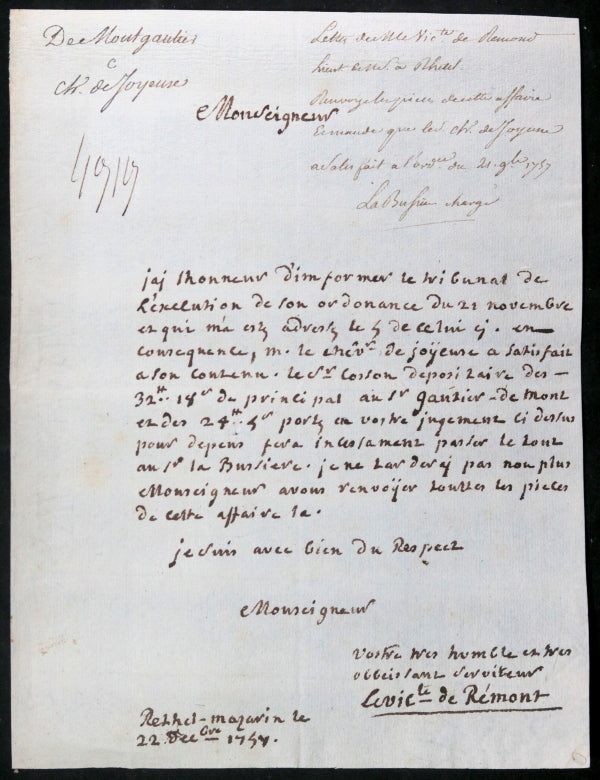 De Montgautier
c
ch. de Joyeuse
Lettre de M. le Vic.te de Remond
Lieut de M. a Rhetel
Renvoye les pieces de cette affaire
Et mande que le Ch. de Joyeuse
a satisfait a l'ord.ce du 21. 9bre 1757
La Bussiere chargé
Monseigneur
jaj lhonneur d'imformer le tribunal de
L'exécution de son ordonance du 21 novembre
et qui m'a esté adressé le 5 de celui cj. en
consequence, m. le chev.r de joÿeuse a satisfait
a son contenu. le S.r Cosson depositaire des
32.tt 18.s de principal au S.r gautier-de mont
et des 24.tt 5.s portés en vostre jugement ci dessus
pour depens fera incessament passer le tout
au S.r la Bussiere. je ne tarderaj pas non plus
Monseigneur avous renvoÿer touttes les pieces
de cette affaire la.
je suis avec bien du Respect
Monseigneur
vostre tres humble et tres
obbeissant serviteur
Le vic.te de Rémont
Rethel-mazarin le
22 decbre 1757.